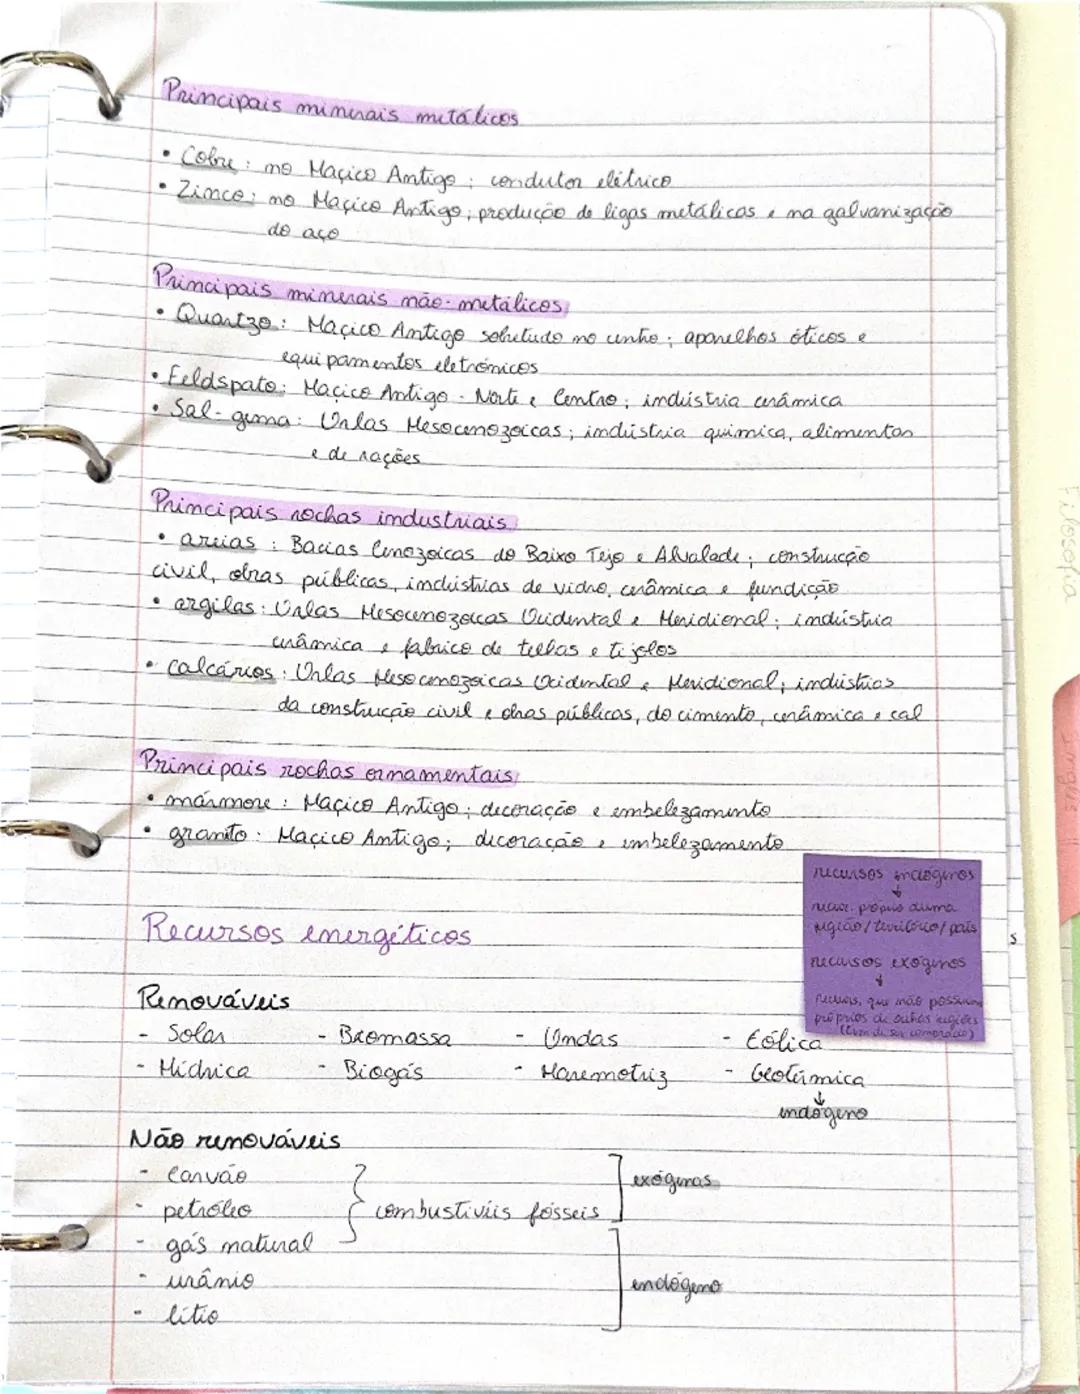 Principais minerais metálicos
• Cobre: no Maciço Antigo; condutor elétrico
• Zinco: no Maciço Antigo; produção de ligas metálicas e na galvanização
do aço
Principais minerais não-metálicos
• Quartzo: Maciço Antigo sobretudo no centro; aparelhos óticos e
equipamentos eletrónicos
• Feldspato: Maciço Antigo - Norte e Centro; indústria cerâmica
• Sal-gema: Orlas Mesocenozoicas; indústria quimica, alimentar
e de rações
Principais rochas industriais
• areias: Bacias Cenozoicas do Baixo Tejo e Alvalade; construção
civil, obras públicas, indústrias de vidro, cerâmica e fundição
• argilas: Orlas Mesocenozoicas Ocidental e Meridional; indústria
cerâmica e fabrico de telhas e tijolos
• calcários: Orlas Mesocenozoicas Ocidental e Meridional; indústrias
da construção civil e obras públicas, do cimento, cerâmica e cal
Principais rochas ornamentais
• mármore: Maciço Antigo; decoração e embelezamento
• granito: Maciço Antigo; decoração e embelezamento
recursos endógenos
↓
recur. próprio duma
região/território/país
recursos exógenos
↓
recurs. que não possuem
próprios de outras regiões
(tem de ser comprado)
Recursos energéticos
Renováveis
- Solar - Biomassa - Ondas - Eólica
- Hídrica - Biogás - Maremotriz - Geotérmica
↓
endógeno
Não renováveis
- Carvão
exógenas
- petróleo
combustíveis fósseis
- gás natural
- urânio
endógeno
- lítio
Filosofia
Inglês